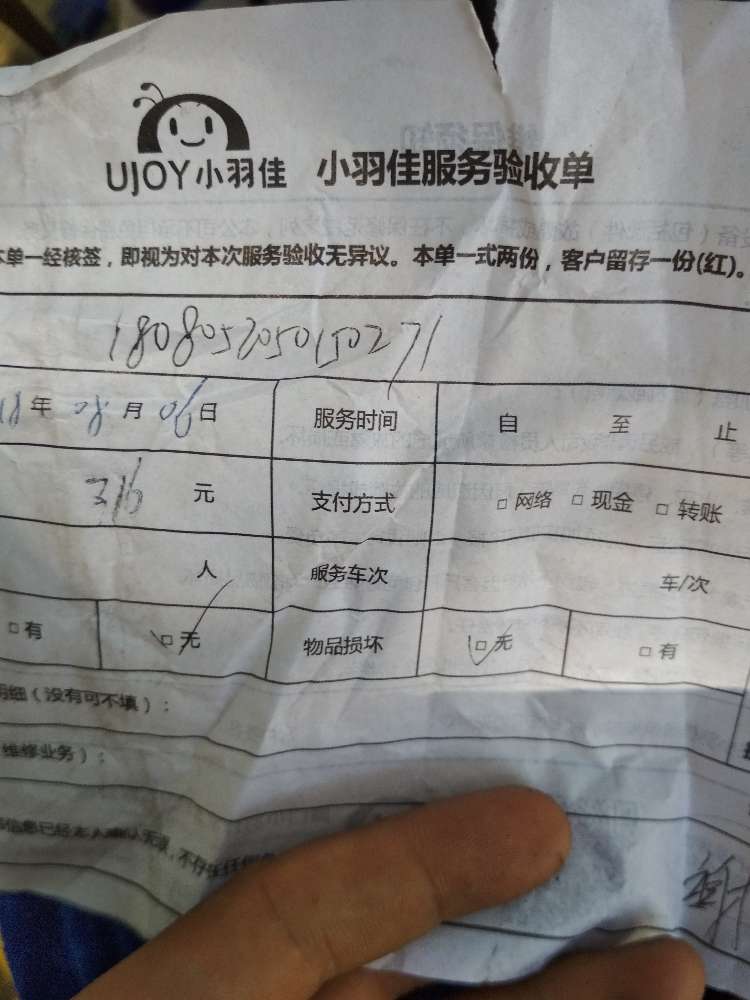 UJOY小羽佳 小羽佳服务验收单
本单一经核签，即视为对本次服务验收无异议。本单一式两份，客户留存一份(红)。
1808052050150271
18年 08月 06日 服务时间 自 至 止
316 元 支付方式 □ 网络 □ 现金 □ 转账
人 服务车次 车/次
□ 有 □ 无 物品损坏 □ 无 □ 有
明细（没有可不填）：
维修业务）：
信息已经本人确认无误，不存在任何